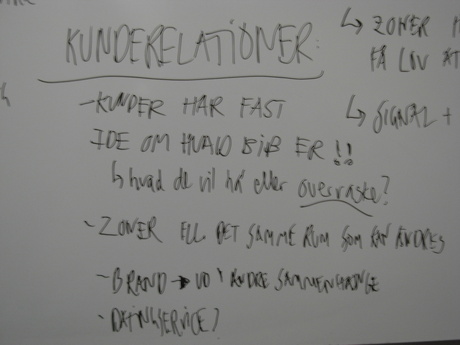 KUNDERELATIONER:
- KUNDER HAR FAST
IDE OM HVAD BIB ER !!
↳ hvad de vil ha eller overraske?
- ZONER ELL. DET SAMME RUM SOM KAN ÆNDRES
- BRAND → UD I ANDRE SAMMENHÆNGE
- DATINGSERVICE?
↳ ZONER
FÅ LOV AT
↳ SIGNAL +